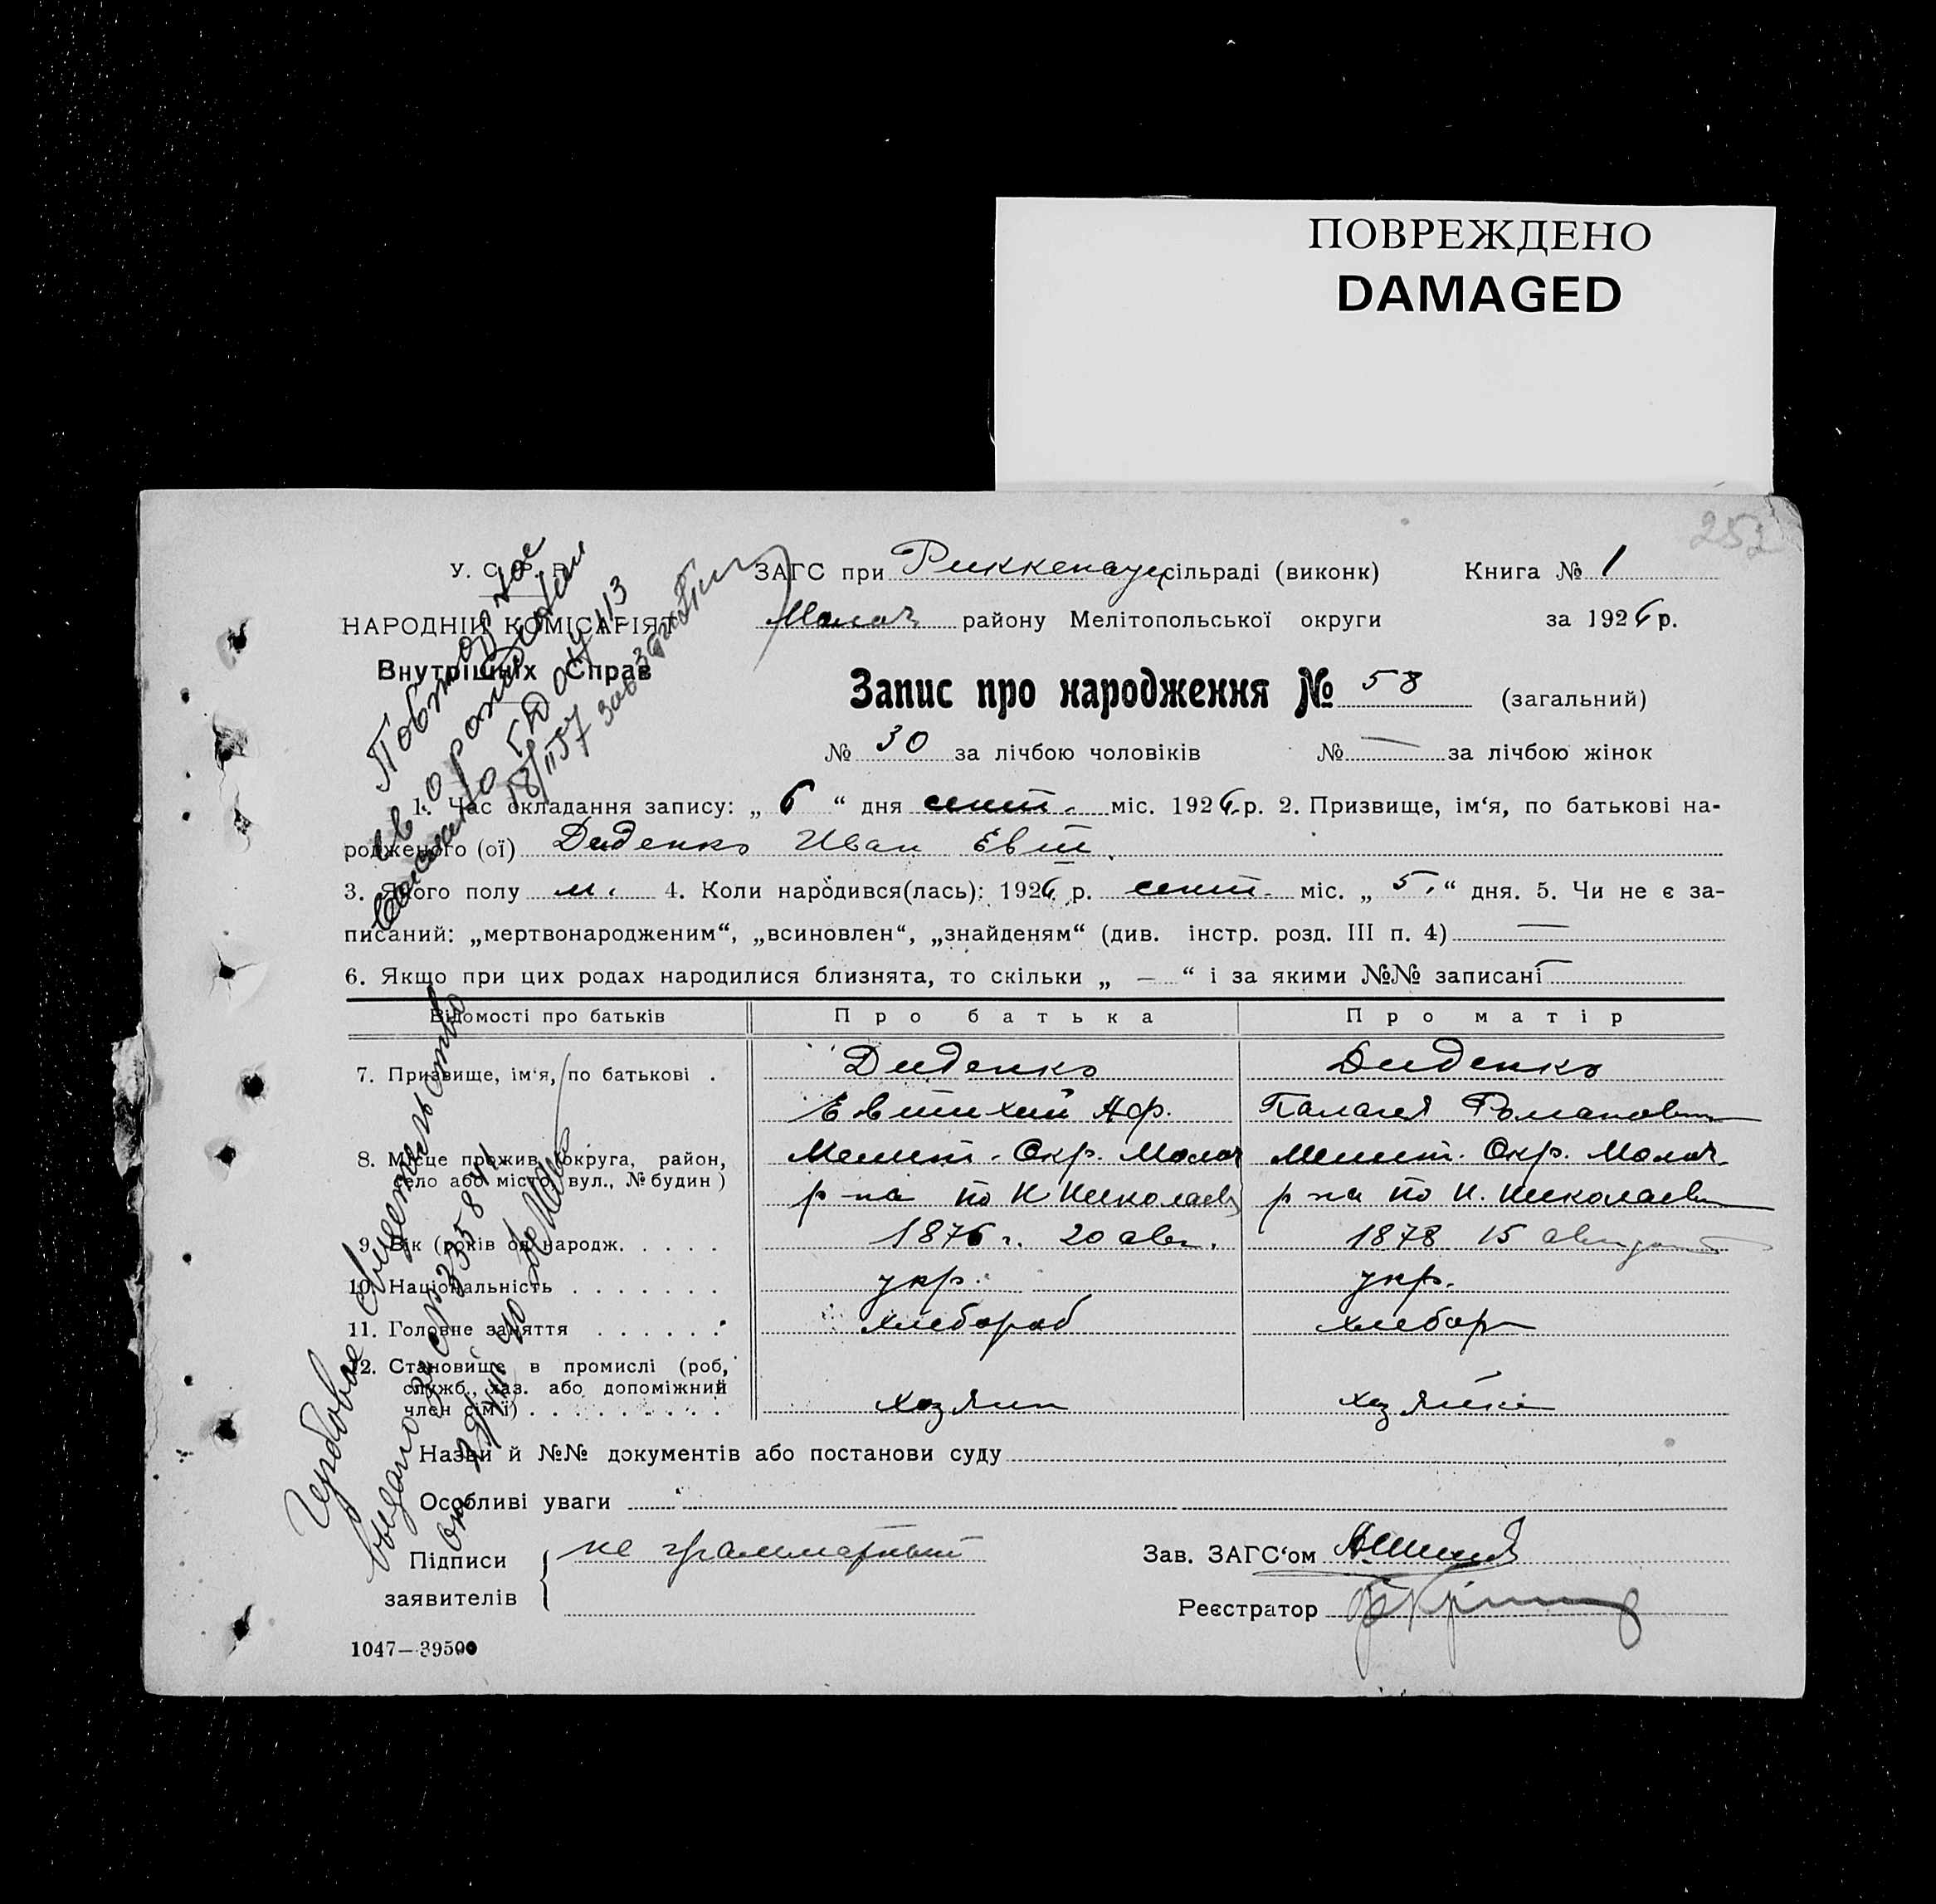 ПОВРЕЖДЕНО
DAMAGED
252
У. С. Р. Р.
НАРОДНІЙ КОМІСАРІЯТ
Внутрішніх Справ
ЗАГС при Риккенауск сільраді (виконк) Книга № 1
Молоч району Мелітопольської округи за 1926 р.
Запис про народження № 58 (загальний)
№ 30 за лічбою чоловіків № — за лічбою жінок
1. Час складання запису: „ 6 “ дня сент. міс. 1926 р. 2. Призвище, ім‘я, по батькові на-
родженого (ої) Диденко Иван Евт.
3. Якого полу м. 4. Коли народився(лась): 1926 р. сент. міс. „ 5. “ дня. 5. Чи не є за-
писаний: „мертвонародженим“, „всиновлен“, „знайденям“ (див. інстр. розд. III п. 4) —
6. Якщо при цих родах народилися близнята, то скільки „ — “ і за якими №№ записані —
Відомості про батьків Про батька Про матір
7. Призвище, ім‘я, по батькові . Диденко Диденко
Евтихий Аф. Палагея Романовн
8. Місце прожив. (округа, район, Мелит. Окр. Молоч Мелит. Окр. Молоч
село або місто, вул., № будин) р-на по Н Николаев р-на по Н. Николаев
9. Вік (років од народж. . . . . 1876 г. 20 авг. 1878 15 августа
10. Національність . . . . . . . укр. укр.
11. Головне заняття . . . . . . хлебороб хлебор
12. Становище в промислі (роб,
служб., хаз. або допоміжний
член сім‘ї) . . . . . . . . . хозяин хозяйка
Назви й №№ документів або постанови суду
Особливі уваги
Підписи не грамматный Зав. ЗАГС‘ом
заявителів Реєстратор
1047—39500
Повторное
св. о рождении
18/II 57
Гербовое свидетельство
выдано за №